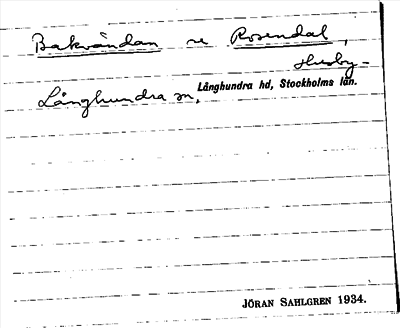 Bakvändan se Rosendal,
Husby-
Långhundra sn,
Långhundra hd, Stockholms län.
JÖRAN SAHLGREN 1934.